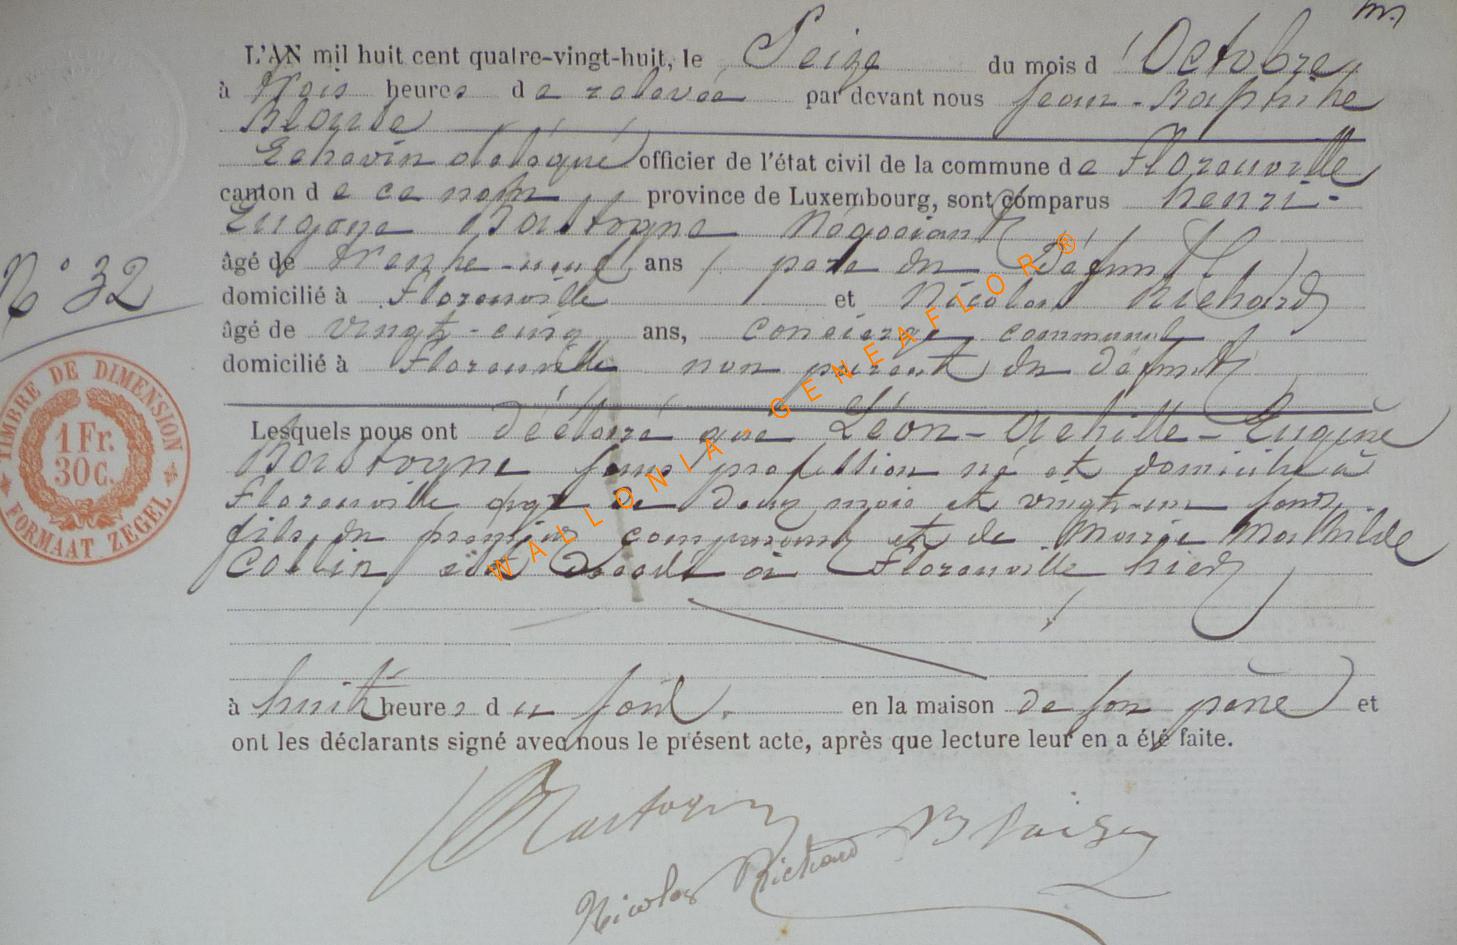 m.
L'AN mil huit cent quatre-vingt-huit, le Seize du mois d'Octobre,
à trois heures de relevée par devant nous Jean-Baptiste
Echevin délégué officier de l'état civil de la commune de Florenville
canton de ce nom province de Luxembourg, sont comparus henri-
Eugène Bastogne Négociant
âgé de trente-neuf ans, père du Défunt
N° 32
domicilié à Florenville et Nicolas Richard
âgé de vingt-cinq ans, concierge communal
domicilié à Florenville non parent du défunt
Lesquels nous ont déclaré que Léon-Achille-Eugène
Bastogne sans profession né et domicilié à
Florenville âgé de deux mois et vingt-un jours
fils du premier comparant et de Marie Mathilde
Collin, est décédé à Florenville hier
à huit heures du soir. en la maison de son père et
ont les déclarants signé avec nous le présent acte, après que lecture leur en a été faite.
Bastogne
Nicolas Richard
TIMBRE DE DIMENSION
1 Fr.
30 C.
FORMAAT ZEGEL
WALLONIA - GENEAFLOR ®